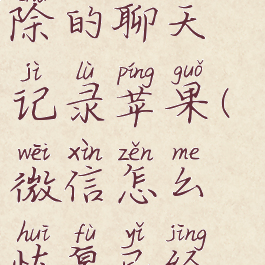 除的聊天
jì lù píng guǒ
记录苹果(
wēi xìn zěn me
微信怎么
huī fù yǐ jīng
恢复已经